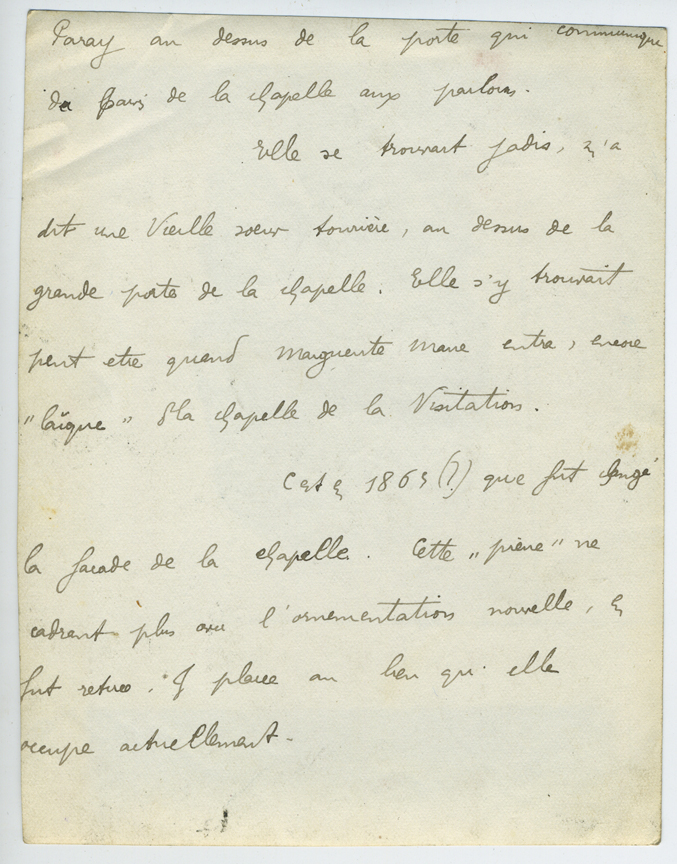 Paray au dessus de la porte qui communique
du parvis de la chapelle aux parloirs.
Elle se trouvait jadis, m'a
dit une Vieille soeur tourière, au dessus de la
grande porte de la chapelle. Elle s'y trouvait
peut etre quand Marguerite Marie entra, encore
"laïque" ds la chapelle de la Visitation.
C'est en 1865 (?) que fut changé
la façade de la chapelle. Cette "pierre" ne
cadrant plus avec l'ornementation nouvelle, en
fut retirée. Et placée au lieu qu'elle
occupe actuellement.